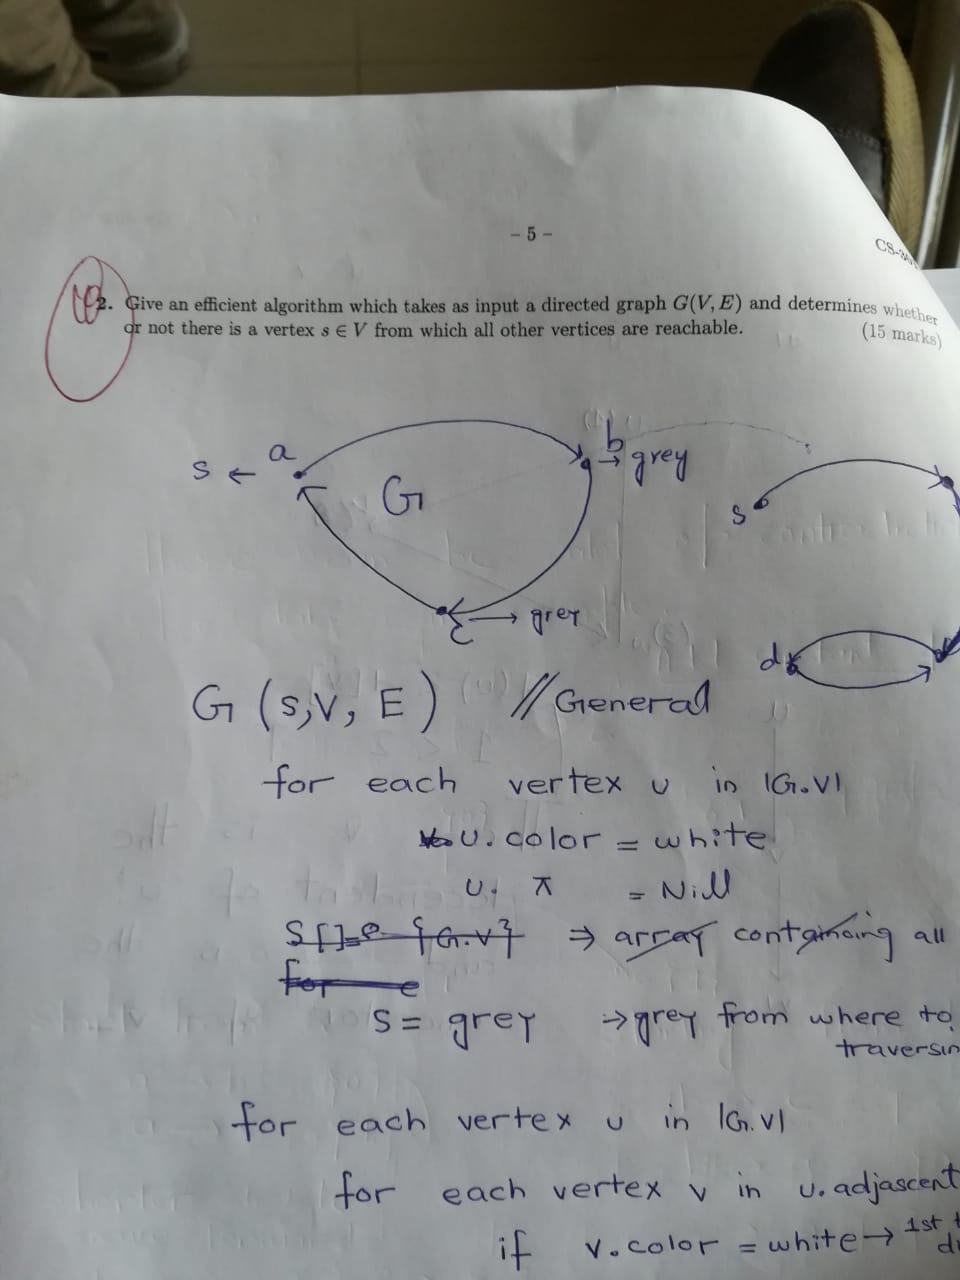 - 5 -
2. Give an efficient algorithm which takes as input a directed graph G(V, E) and determines whether
or not there is a vertex s ∈ V from which all other vertices are reachable.
(15 marks)
b
a
s ←
→ grey
G
s
c → grey
d
G (s,V, E) // General
for each vertex u in |G.V|
u. color = white
u. π = Nill
S[]= {G.V} ⇒ array containing all
for e
s = grey → grey from where to
for each vertex u in |G.V|
for each vertex v in u.adjascent
if v.color = white → 1st